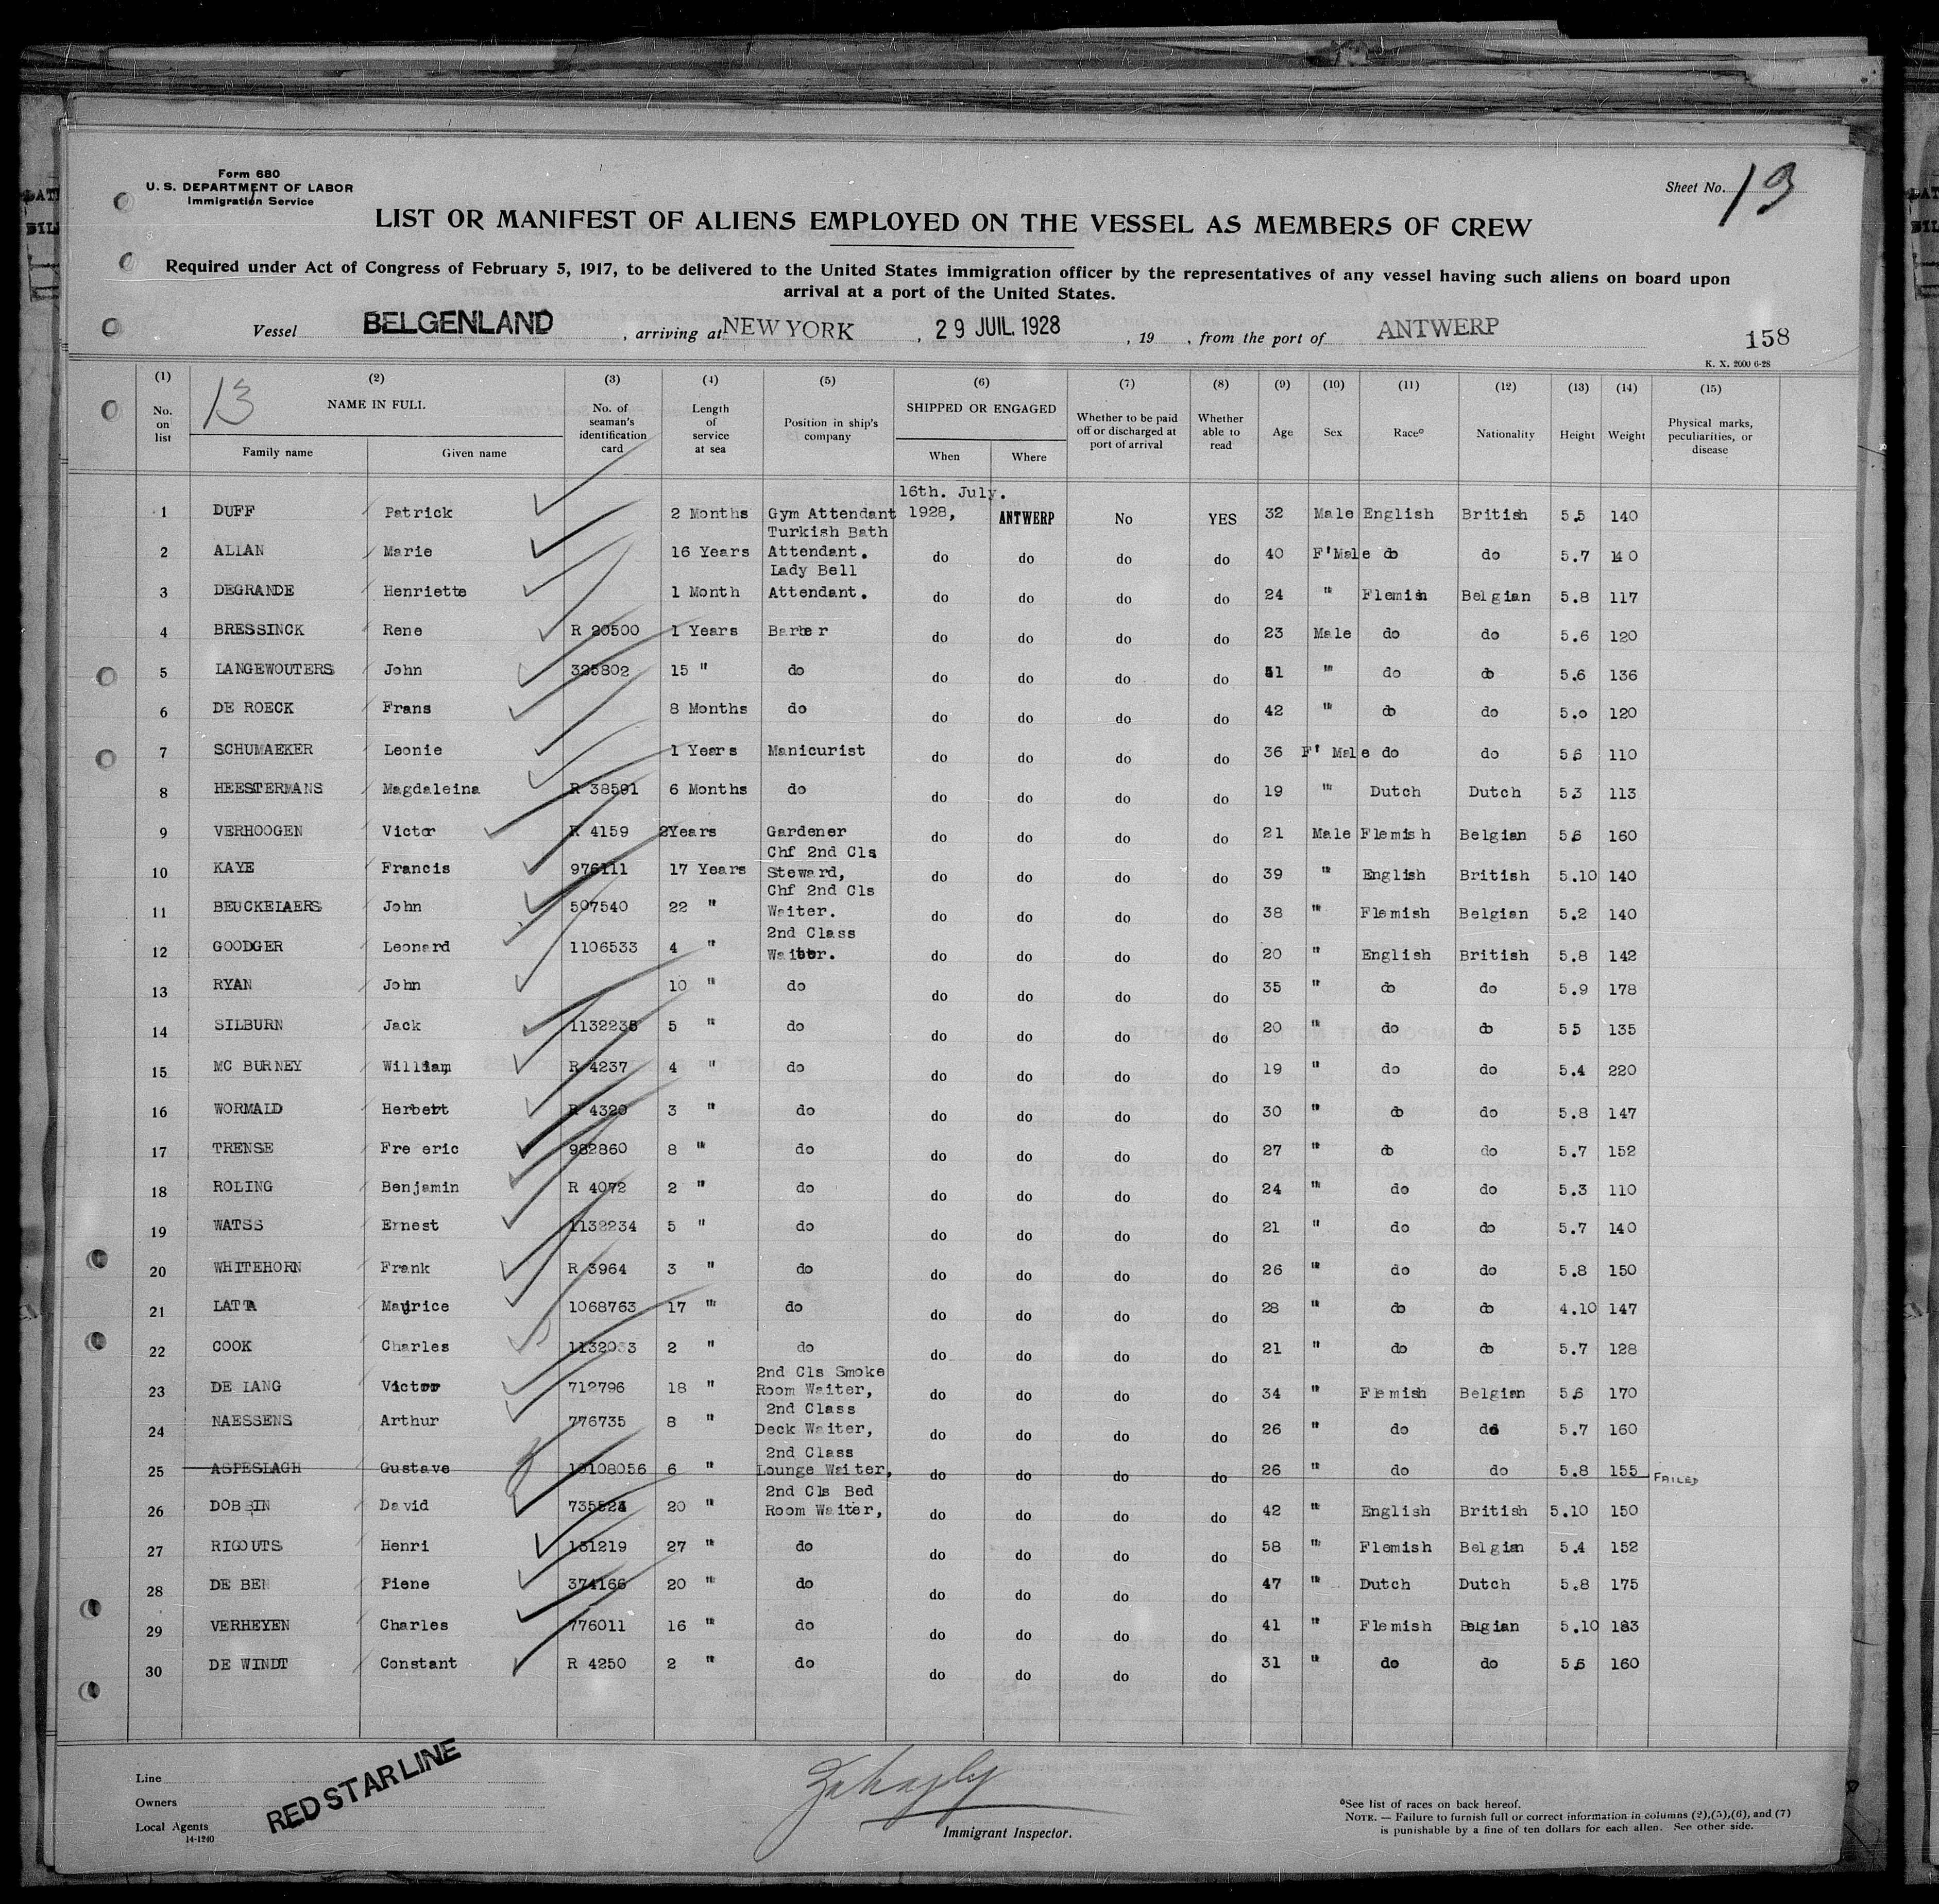 Form 680
U. S. DEPARTMENT OF LABOR
Immigration Service
Sheet No. 13
LIST OR MANIFEST OF ALIENS EMPLOYED ON THE VESSEL AS MEMBERS OF CREW
Required under Act of Congress of February 5, 1917, to be delivered to the United States immigration officer by the representatives of any vessel having such aliens on board upon
arrival at a port of the United States.
Vessel BELGENLAND , arriving at NEW YORK , 29 JUIL. 1928 , 19 , from the port of ANTWERP
158
K. X. 2000 6-28
(1) (2) (3) (4) (5) (6) (7) (8) (9) (10) (11) (12) (13) (14) (15)
13
No. on list NAME IN FULL Family name Given name No. of seaman's identification card Length of service at sea Position in ship's company SHIPPED OR ENGAGED When Where Whether to be paid off or discharged at port of arrival Whether able to read Age Sex Race° Nationality Height Weight Physical marks, peculiarities, or disease
1 DUFF Patrick 2 Months Gym Attendant 16th. July. 1928, ANTWERP No YES 32 Male English British 5.5 140
2 ALLAN Marie 16 Years Turkish Bath Attendant. do do do do 40 F'Male do do 5.7 140
3 DEGRANDE Henriette 1 Month Lady Bell Attendant. do do do do 24 " Flemish Belgian 5.8 117
4 BRESSINCK Rene R 20500 1 Years Barber do do do do 23 Male do do 5.6 120
5 LANGEWOUTERS John 325802 15 " do do do do do 51 " do do 5.6 136
6 DE ROECK Frans 8 Months do do do do do 42 " do do 5.0 120
7 SCHUMAEKER Leonie 1 Years Manicurist do do do do 36 F' Male do do 5.6 110
8 HEESTERMANS Magdaleina R 38591 6 Months do do do do do 19 " Dutch Dutch 5.3 113
9 VERHOOGEN Victor R 4159 2Years Gardener do do do do 21 Male Flemish Belgian 5.6 160
10 KAYE Francis 976111 17 Years Chf 2nd Cls Steward, do do do do 39 " English British 5.10 140
11 BEUCKELAERS John 507540 22 " Chf 2nd Cls Waiter. do do do do 38 " Flemish Belgian 5.2 140
12 GOODGER Leonard 1106533 4 " 2nd Class Waiter. do do do do 20 " English British 5.8 142
13 RYAN John 10 " do do do do do 35 " do do 5.9 178
14 SILBURN Jack 1132235 5 " do do do do do 20 " do do 5.5 135
15 MC BURNEY William R 4237 4 " do do do do do 19 " do do 5.4 220
16 WORMALD Herbert R 4320 3 " do do do do do 30 " do do 5.8 147
17 TRENSE Fre eric 982860 8 " do do do do do 27 " do do 5.7 152
18 ROLING Benjamin R 4072 2 " do do do do do 24 " do do 5.3 110
19 WATSS Ernest 1132234 5 " do do do do do 21 " do do 5.7 140
20 WHITEHORN Frank R 3964 3 " do do do do do 26 " do do 5.8 150
21 LATTA Maurice 1068763 17 " do do do do do 28 " do do 4.10 147
22 COOK Charles 1132033 2 " do do do do do 21 " do do 5.7 128
23 DE LANG Victor 712796 18 " 2nd Cls Smoke Room Waiter, do do do do 34 " Flemish Belgian 5.6 170
24 NAESSENS Arthur 776735 8 " 2nd Class Deck Waiter, do do do do 26 " do do 5.7 160
25 ASPESLAGH Gustave 10108056 6 " 2nd Class Lounge Waiter, do do do do 26 " do do 5.8 155 FAILED
26 DOBBIN David 20 " 2nd Cls Bed Room Waiter, do do do do 42 " English British 5.10 150
27 RIGOUTS Henri 131219 27 " do do do do do 58 " Flemish Belgian 5.4 152
28 DE BEN Piene 374166 20 " do do do do do 47 " Dutch Dutch 5.8 175
29 VERHEYEN Charles 776011 16 " do do do do do 41 " Flemish Belgian 5.10 183
30 DE WINDT Constant R 4250 2 " do do do do do 31 " do do 5.6 160
Line
Owners
Local Agents
14-1240
RED STAR LINE
Immigrant Inspector.
°See list of races on back hereof.
NOTE. — Failure to furnish full or correct information in columns (2),(5),(6), and (7)
is punishable by a fine of ten dollars for each alien. See other side.